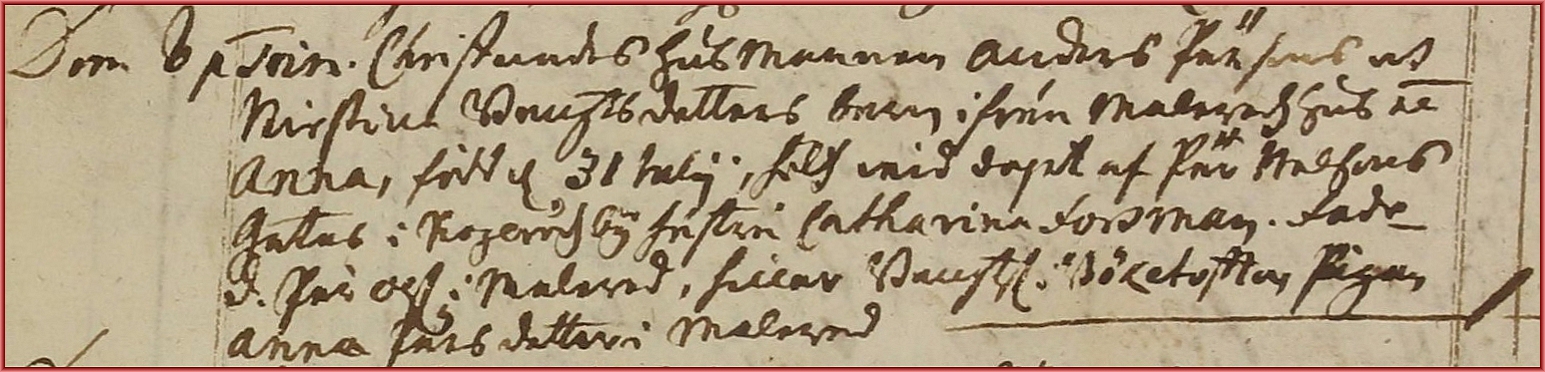 Dom 8 p Trin. Christnades Husmannen Anders Pärsons ock
Kirstina Bengtsdotters barn ifrån Malered hus nē
Anna, född d 31 Julij, hölts wid dopet af Pär Nilsons
Gutas i Rogerödz by hustru Catharina Forsman. Fadd
d. Pär i Malered, Bengts. i Böketofften Pigan
Anna Larsdotter i Malered